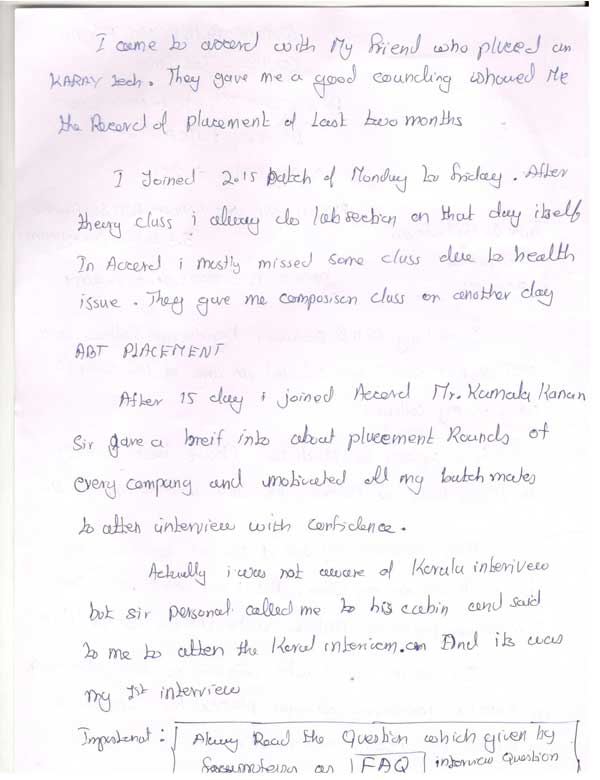 I came to accerd with My friend who pluced an
KARAY tech. They gave me a good councling whowed Me
the Record of Plucement of Last two months
I Joined 2015 batch of Monday to friday. After
theory class i alway do lab section on that day itself
In Accerd i mostly missed some class due to health
issue. They gave me composison class on another day
ABT PLACEMENT
After 15 day i joined Accerd Mr. Kamala Kanan
Sir gave a breif into about plucement Rounds of
every company and motivated all my butch mates
to atten interview with confidence.
Actually i was not aware of Kerula interivew
but sir personal called me to his cabin and said
to me to atten the Keral And its was
my 1st interview
Important: Alway Read the Question which given by
as FAQ interview Question